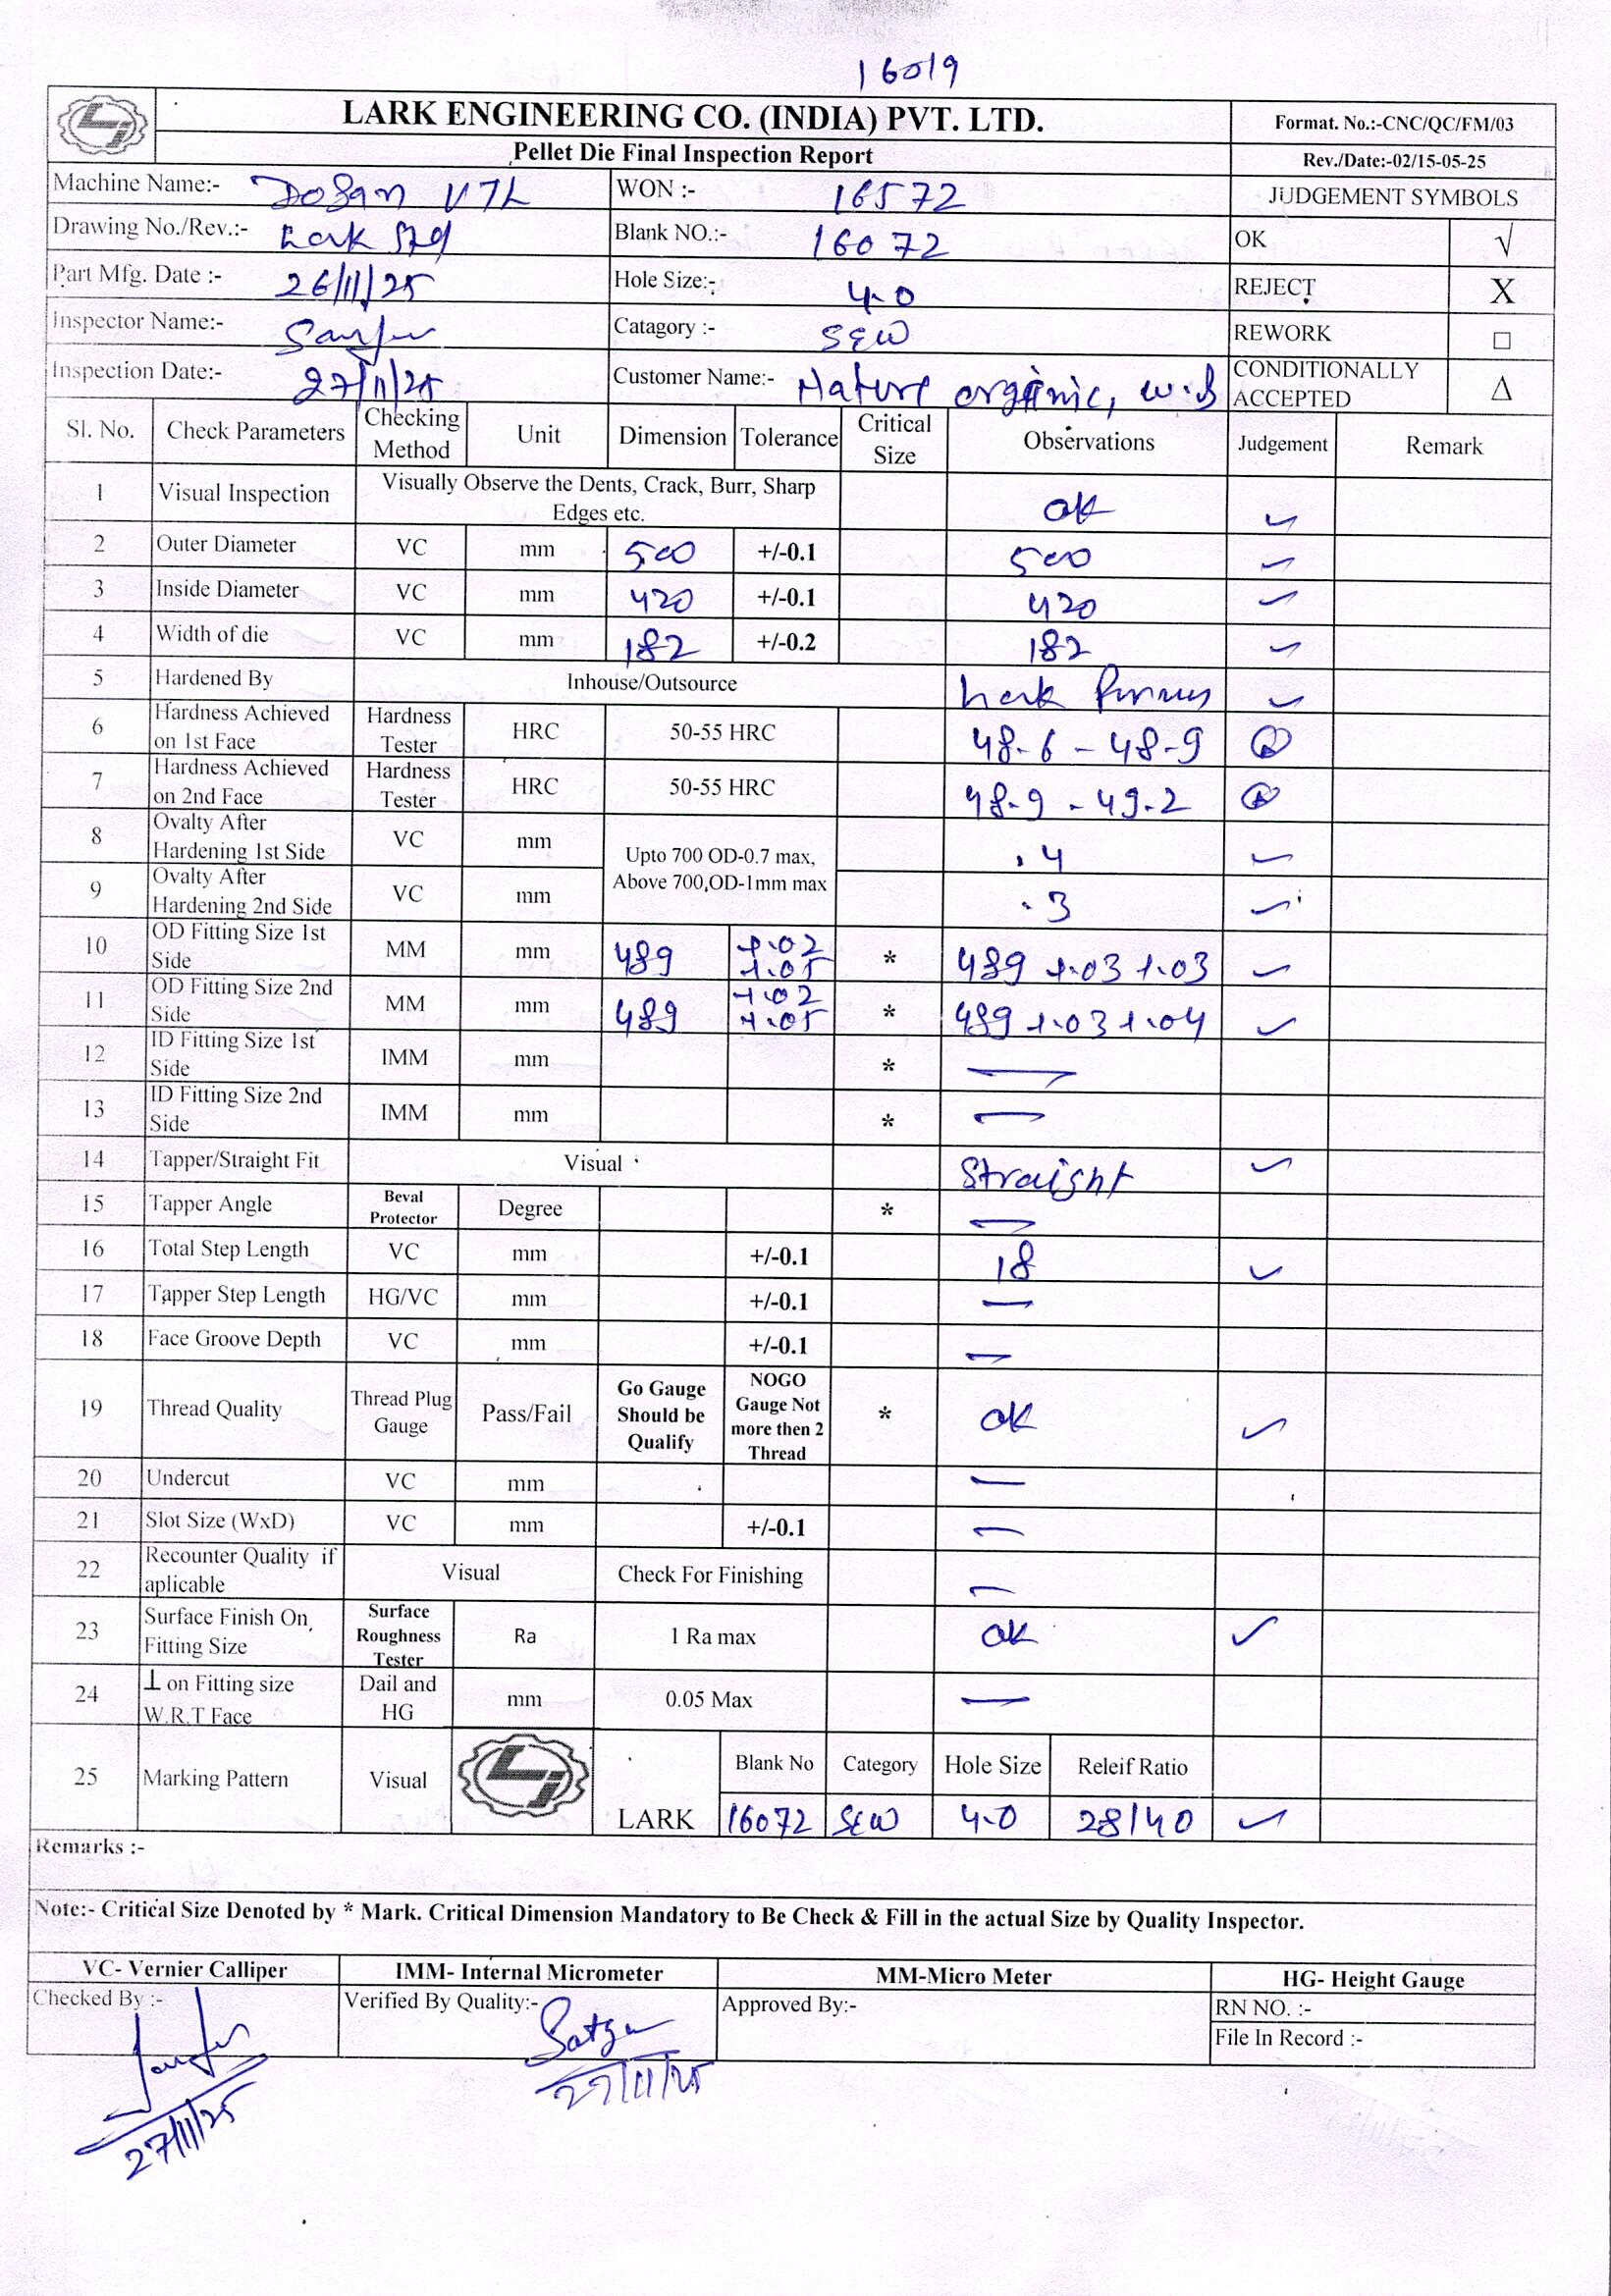 16019
LARK ENGINEERING CO. (INDIA) PVT. LTD.
Format. No.:-CNC/QC/FM/03
Pellet Die Final Inspection Report
Rev./Date:-02/15-05-25
Machine Name:- Dosan VTL WON :- 16572 JUDGEMENT SYMBOLS
Drawing No./Rev.:- Lark Std Blank NO.:- 16072 OK √
Part Mfg. Date :- 26/11/25 Hole Size:- 4.0 REJECT X
Inspector Name:- Catagory :- SEW REWORK □
Inspection Date:- 27/11/25 Customer Name:- Nature organic, W.B CONDITIONALLY ACCEPTED Δ
Sl. No. Check Parameters Checking Method Unit Dimension Tolerance Critical Size Observations Judgement Remark
1 Visual Inspection Visually Observe the Dents, Crack, Burr, Sharp Edges etc. ok ✓
2 Outer Diameter VC mm 500 +/-0.1 500 ✓
3 Inside Diameter VC mm 420 +/-0.1 420 ✓
4 Width of die VC mm 182 +/-0.2 182 ✓
5 Hardened By Inhouse/Outsource Lark ✓
6 Hardness Achieved on 1st Face Hardness Tester HRC 50-55 HRC 48.6 - 48.9
7 Hardness Achieved on 2nd Face Hardness Tester HRC 50-55 HRC 48.9 - 49.2
8 Ovalty After Hardening 1st Side VC mm Upto 700 OD-0.7 max, Above 700,OD-1mm max .4 ✓
9 Ovalty After Hardening 2nd Side VC mm .3 ✓
10 OD Fitting Size 1st Side MM mm 489 +.02 +.05 * 489 +.03 +.03 ✓
11 OD Fitting Size 2nd Side MM mm 489 +.02 +.05 * 489 +.03 +.04 ✓
12 ID Fitting Size 1st Side IMM mm * —
13 ID Fitting Size 2nd Side IMM mm * —
14 Tapper/Straight Fit Visual Straight ✓
15 Tapper Angle Beval Protector Degree * —
16 Total Step Length VC mm +/-0.1 18 ✓
17 Tapper Step Length HG/VC mm +/-0.1 —
18 Face Groove Depth VC mm +/-0.1 —
19 Thread Quality Thread Plug Gauge Pass/Fail Go Gauge Should be Qualify NOGO Gauge Not more then 2 Thread * ok ✓
20 Undercut VC mm —
21 Slot Size (WxD) VC mm +/-0.1 —
22 Recounter Quality if aplicable Visual Check For Finishing —
23 Surface Finish On Fitting Size Surface Roughness Tester Ra 1 Ra max ok ✓
24 ⊥ on Fitting size W.R.T Face Dail and HG mm 0.05 Max —
25 Marking Pattern Visual LARK Blank No Category Hole Size Releif Ratio
16072 SEW 4.0 28/40 ✓
Remarks :-
Note:- Critical Size Denoted by * Mark. Critical Dimension Mandatory to Be Check & Fill in the actual Size by Quality Inspector.
VC- Vernier Calliper IMM- Internal Micrometer MM-Micro Meter HG- Height Gauge
Checked By :- Verified By Quality:- Approved By:- RN NO. :-
File In Record :-
27/11/25
27/11/25